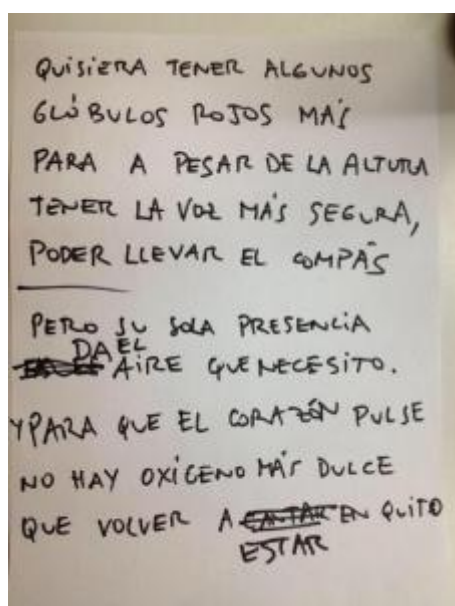 QUISIERA TENER ALGUNOS
GLÓBULOS ROJOS MÁS
PARA A PESAR DE LA ALTURA
TENER LA VOZ MÁS SEGURA,
PODER LLEVAR EL COMPÁS
PERO SU SOLA PRESENCIA
DA EL
AIRE QUE NECESITO.
Y PARA QUE EL CORAZÓN PULSE
NO HAY OXÍGENO MÁS DULCE
QUE VOLVER A CANTAR EN QUITO
ESTAR